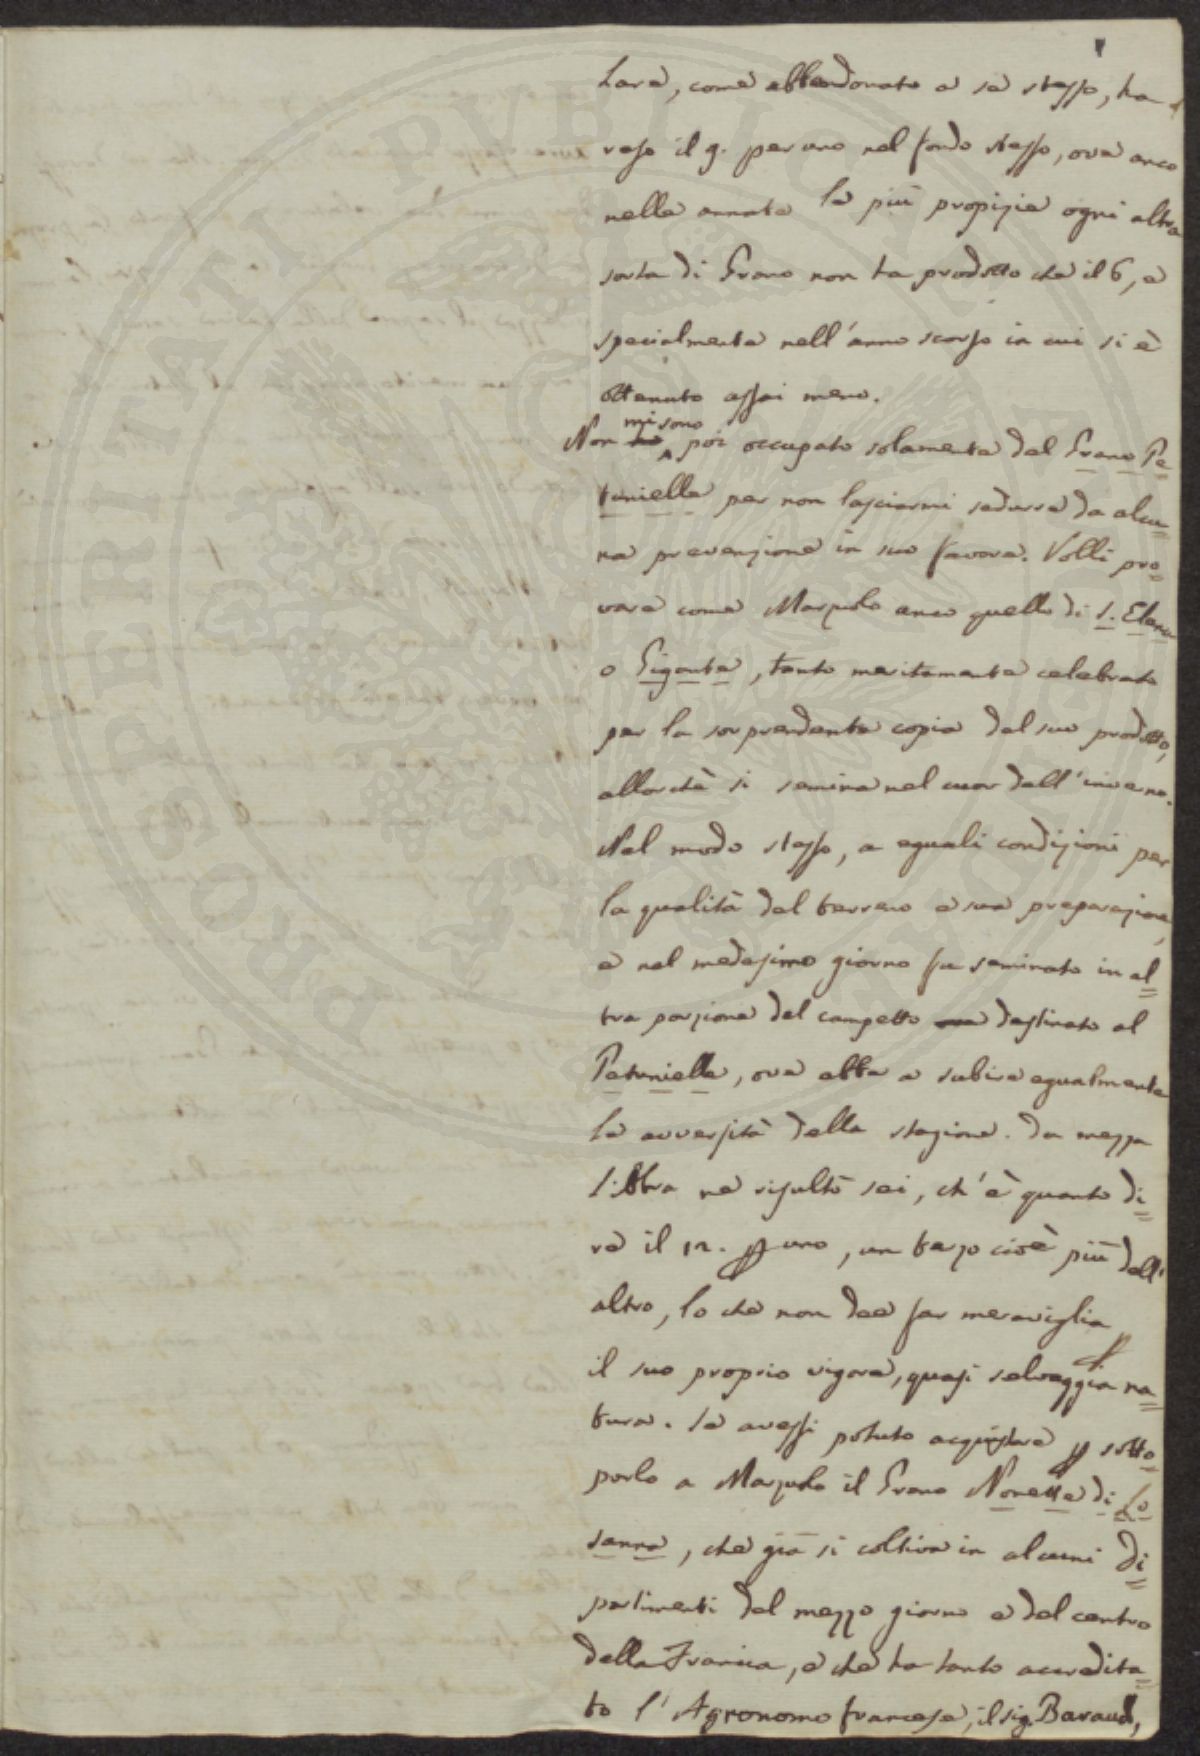 lare, come abbandonato a se stesso, ha
reso il 9. per uno nel fondo stesso, ove anco
nelle annate le più propizie ogni altra
sorta di Grano non ha prodotto che il 6, e
specialmente nell'anno scorso in cui si è
ottenuto assai meno.
Non mi sono poi occupato solamente del Grano Pe=
tuniella per non lasciarmi sedurre da alcu=
na prevenzione in suo favore. Volli pro=
vare come Marzuolo anco quello di S. Elena
o Gigante, tanto meritamente celebrato
per la sorprendente copia del suo prodotto,
allorchè si semina nel cuor dell'inverno.
Nel modo stesso, a eguali condizioni per
la qualità del terreno e sua preparazione,
e nel medesimo giorno fu seminato in al=
tra porzione del campetto destinato al
Petuniella, ove ebbe a subire egualmente
le avversità della stagione. Da mezza
libbra ne risultò sei, ch'è quanto di=
re il 12. p uno, un terzo cioè più dell'
altro, lo che non dee far meraviglia p
il suo proprio vigore, quasi selvaggia na=
tura. Se avessi potuto acquistare p sotto=
porlo a Marzuolo il Grano Nonette di Lo=
sanna, che già si coltiva in alcuni di=
partimenti del mezzo giorno e del centro
della Francia, e che ha tanto accredita=
to l'Agronomo francese, il sig. Baraud,
PROSPERITATI PVBLICAE